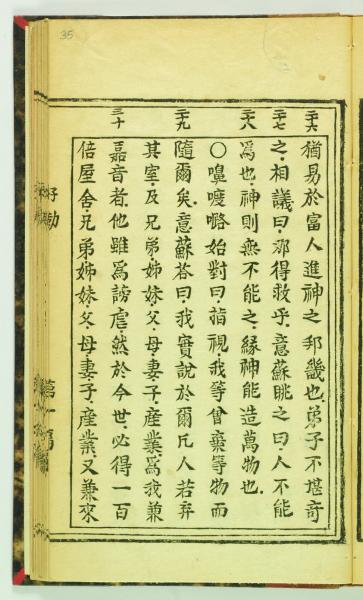 35
二十六
二十七
二十八
二十九
三十
猶易於富人進神之邦畿也弟子不堪奇
之相議曰那得救乎意蘇眺之曰人不能
為也神則無不能之緣神能造萬物也
〇嘷嚏嚕始對曰指視我等曾棄等物而
隨爾矣意蘇荅曰我實說於爾凡人若弃
其室及兄弟姊妹父母妻子產業為我兼
嘉音者他雖為謗虐然於今世必得一百
倍屋舍兄弟姊妹父母妻子產業又兼來